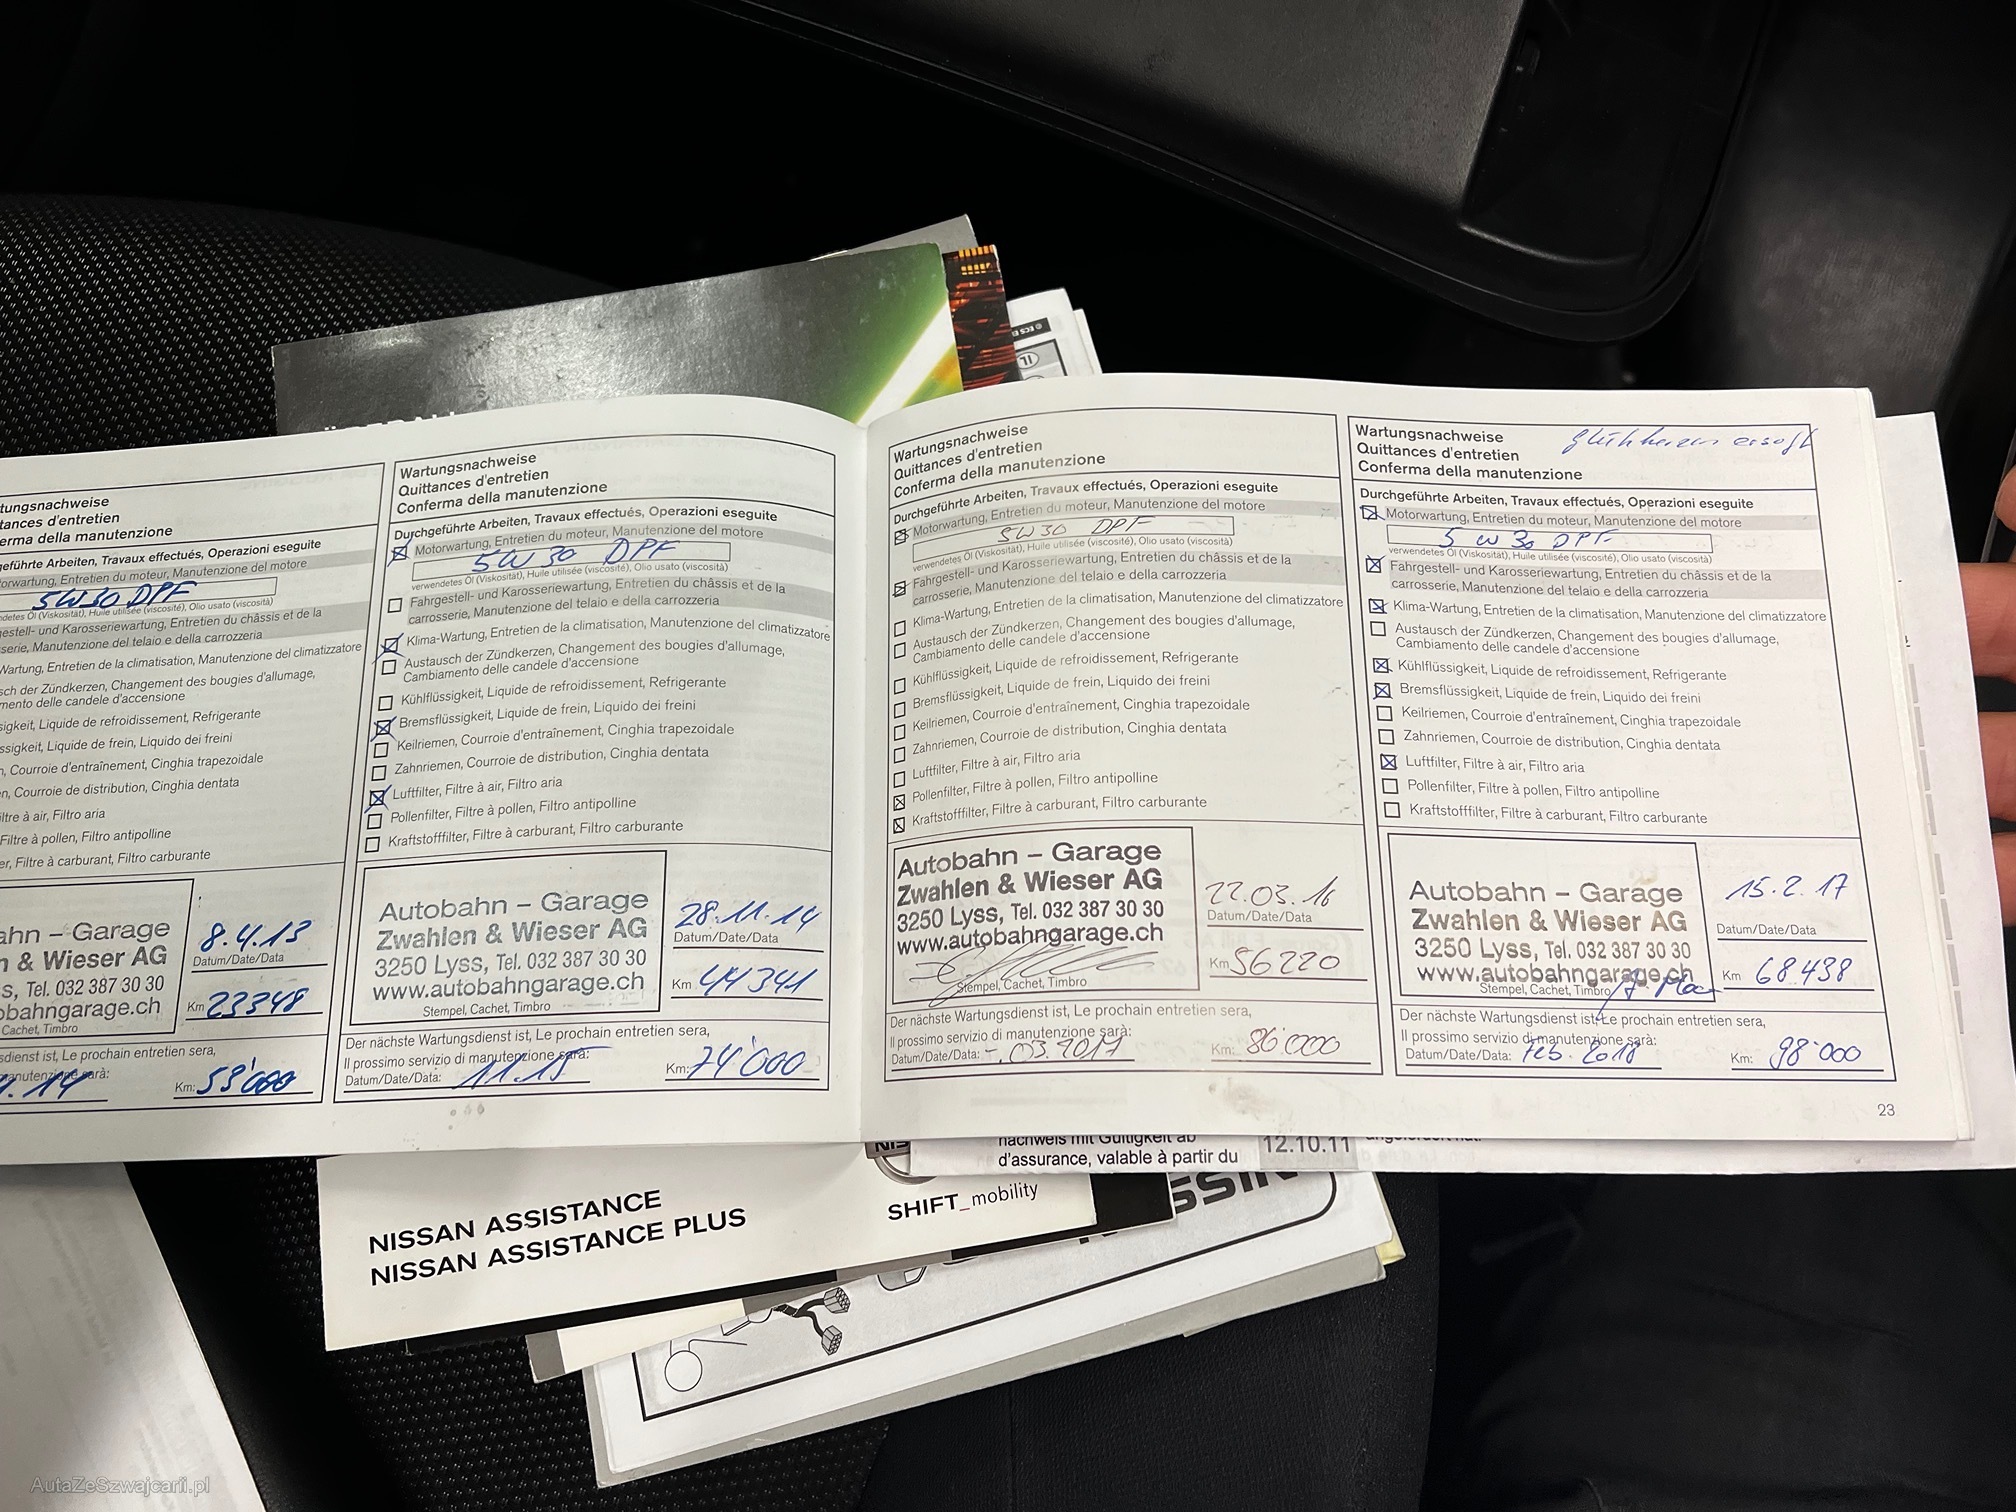 © ECS E
IL
tungsnachweise
tances d'entretien
ferma della manutenzione
geführte Arbeiten, Travaux effectués, Operazioni eseguite
torwartung, Entretien du moteur, Manutenzione del motore
5W30 DPF
ndetes Öl (Viskosität), Huile utilisée (viscosité), Olio usato (viscosità)
gestell- und Karosseriewartung, Entretien du châssis et de la
sserie, Manutenzione del telaio e della carrozzeria
Wartung, Entretien de la climatisation, Manutenzione del climatizzatore
sch der Zündkerzen, Changement des bougies d'allumage,
mento delle candele d'accensione
sigkeit, Liquide de refroidissement, Refrigerante
ssigkeit, Liquide de frein, Liquido dei freini
n, Courroie d'entraînement, Cinghia trapezoidale
n, Courroie de distribution, Cinghia dentata
ltre à air, Filtro aria
Filtre à pollen, Filtro antipolline
er, Filtre à carburant, Filtro carburante
ahn – Garage
n & Wieser AG
s, Tel. 032 387 30 30
bahngarage.ch
Cachet, Timbro
8.4.13
Datum/Date/Data
Km 23348
sdienst ist, Le prochain entretien sera,
manutenzione sarà:
.14
Km: 53'000
Wartungsnachweise
Quittances d'entretien
Conferma della manutenzione
Durchgeführte Arbeiten, Travaux effectués, Operazioni eseguite
Motorwartung, Entretien du moteur, Manutenzione del motore
5W30 DPF
verwendetes Öl (Viskosität), Huile utilisée (viscosité), Olio usato (viscosità)
Fahrgestell- und Karosseriewartung, Entretien du châssis et de la
carrosserie, Manutenzione del telaio e della carrozzeria
Klima-Wartung, Entretien de la climatisation, Manutenzione del climatizzatore
Austausch der Zündkerzen, Changement des bougies d'allumage,
Cambiamento delle candele d'accensione
Kühlflüssigkeit, Liquide de refroidissement, Refrigerante
Bremsflüssigkeit, Liquide de frein, Liquido dei freini
Keilriemen, Courroie d'entraînement, Cinghia trapezoidale
Zahnriemen, Courroie de distribution, Cinghia dentata
Luftfilter, Filtre à air, Filtro aria
Pollenfilter, Filtre à pollen, Filtro antipolline
Kraftstofffilter, Filtre à carburant, Filtro carburante
Autobahn – Garage
Zwahlen & Wieser AG
3250 Lyss, Tel. 032 387 30 30
www.autobahngarage.ch
Stempel, Cachet, Timbro
28.11.14
Datum/Date/Data
Km 44341
Der nächste Wartungsdienst ist, Le prochain entretien sera,
Il prossimo servizio di manutenzione sarà:
Datum/Date/Data: 11.15
Km: 74'000
Wartungsnachweise
Quittances d'entretien
Conferma della manutenzione
Durchgeführte Arbeiten, Travaux effectués, Operazioni eseguite
Motorwartung, Entretien du moteur, Manutenzione del motore
5W30 DPF
verwendetes Öl (Viskosität), Huile utilisée (viscosité), Olio usato (viscosità)
Fahrgestell- und Karosseriewartung, Entretien du châssis et de la
carrosserie, Manutenzione del telaio e della carrozzeria
Klima-Wartung, Entretien de la climatisation, Manutenzione del climatizzatore
Austausch der Zündkerzen, Changement des bougies d'allumage,
Cambiamento delle candele d'accensione
Kühlflüssigkeit, Liquide de refroidissement, Refrigerante
Bremsflüssigkeit, Liquide de frein, Liquido dei freini
Keilriemen, Courroie d'entraînement, Cinghia trapezoidale
Zahnriemen, Courroie de distribution, Cinghia dentata
Luftfilter, Filtre à air, Filtro aria
Pollenfilter, Filtre à pollen, Filtro antipolline
Kraftstofffilter, Filtre à carburant, Filtro carburante
Autobahn – Garage
Zwahlen & Wieser AG
3250 Lyss, Tel. 032 387 30 30
www.autobahngarage.ch
Stempel, Cachet, Timbro
22.03.16
Datum/Date/Data
Km 56220
Der nächste Wartungsdienst ist, Le prochain entretien sera,
Il prossimo servizio di manutenzione sarà:
Datum/Date/Data: -.03.2017
Km: 86'000
Wartungsnachweise
Quittances d'entretien
Conferma della manutenzione
Durchgeführte Arbeiten, Travaux effectués, Operazioni eseguite
Motorwartung, Entretien du moteur, Manutenzione del motore
5W30 DPF
verwendetes Öl (Viskosität), Huile utilisée (viscosité), Olio usato (viscosità)
Fahrgestell- und Karosseriewartung, Entretien du châssis et de la
carrosserie, Manutenzione del telaio e della carrozzeria
Klima-Wartung, Entretien de la climatisation, Manutenzione del climatizzatore
Austausch der Zündkerzen, Changement des bougies d'allumage,
Cambiamento delle candele d'accensione
Kühlflüssigkeit, Liquide de refroidissement, Refrigerante
Bremsflüssigkeit, Liquide de frein, Liquido dei freini
Keilriemen, Courroie d'entraînement, Cinghia trapezoidale
Zahnriemen, Courroie de distribution, Cinghia dentata
Luftfilter, Filtre à air, Filtro aria
Pollenfilter, Filtre à pollen, Filtro antipolline
Kraftstofffilter, Filtre à carburant, Filtro carburante
Autobahn – Garage
Zwahlen & Wieser AG
3250 Lyss, Tel. 032 387 30 30
www.autobahngarage.ch
Stempel, Cachet, Timbro
15.2.17
Datum/Date/Data
Km 68438
Der nächste Wartungsdienst ist, Le prochain entretien sera,
Il prossimo servizio di manutenzione sarà:
Datum/Date/Data: Feb. 2018
Km: 98'000
23
nachweis mit Gültigkeit ab
d'assurance, valable à partir du
12.10.11
NIS
SHIFT_mobility
NISSAN ASSISTANCE
NISSAN ASSISTANCE PLUS
AutaZeSzwajcarii.pl